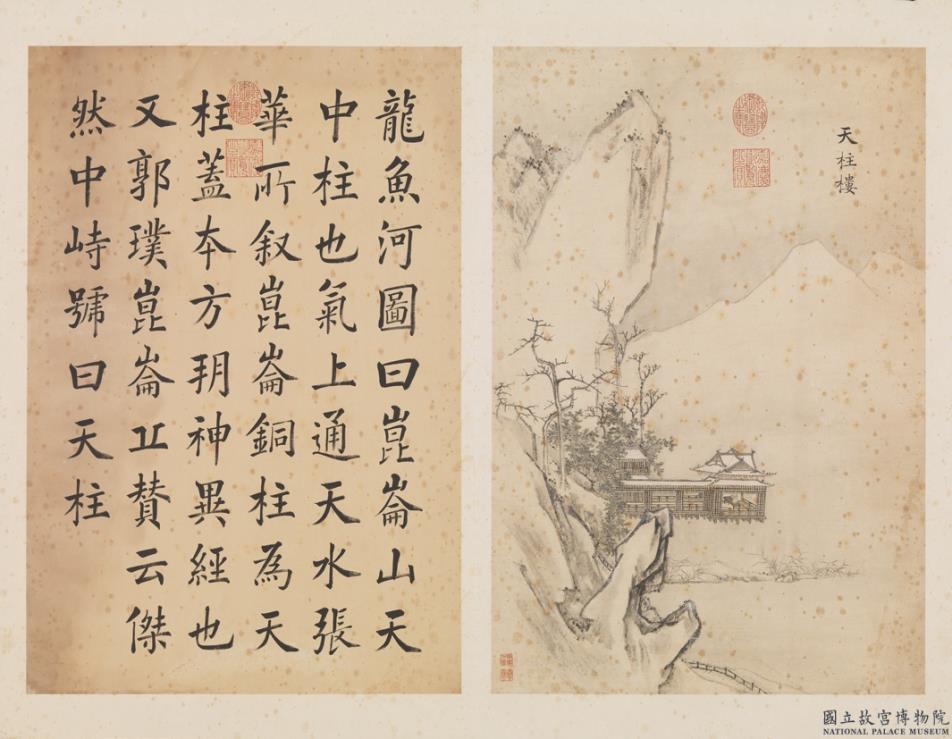 天柱樓
龍魚河圖曰崑崙山天
中柱也氣上通天水張
華所叙崑崙銅柱為天
柱蓋本方玥神異經也
又郭璞崑崙丘贊云傑
然中峙號曰天柱
國立故宮博物院
NATIONAL PALACE MUSEUM